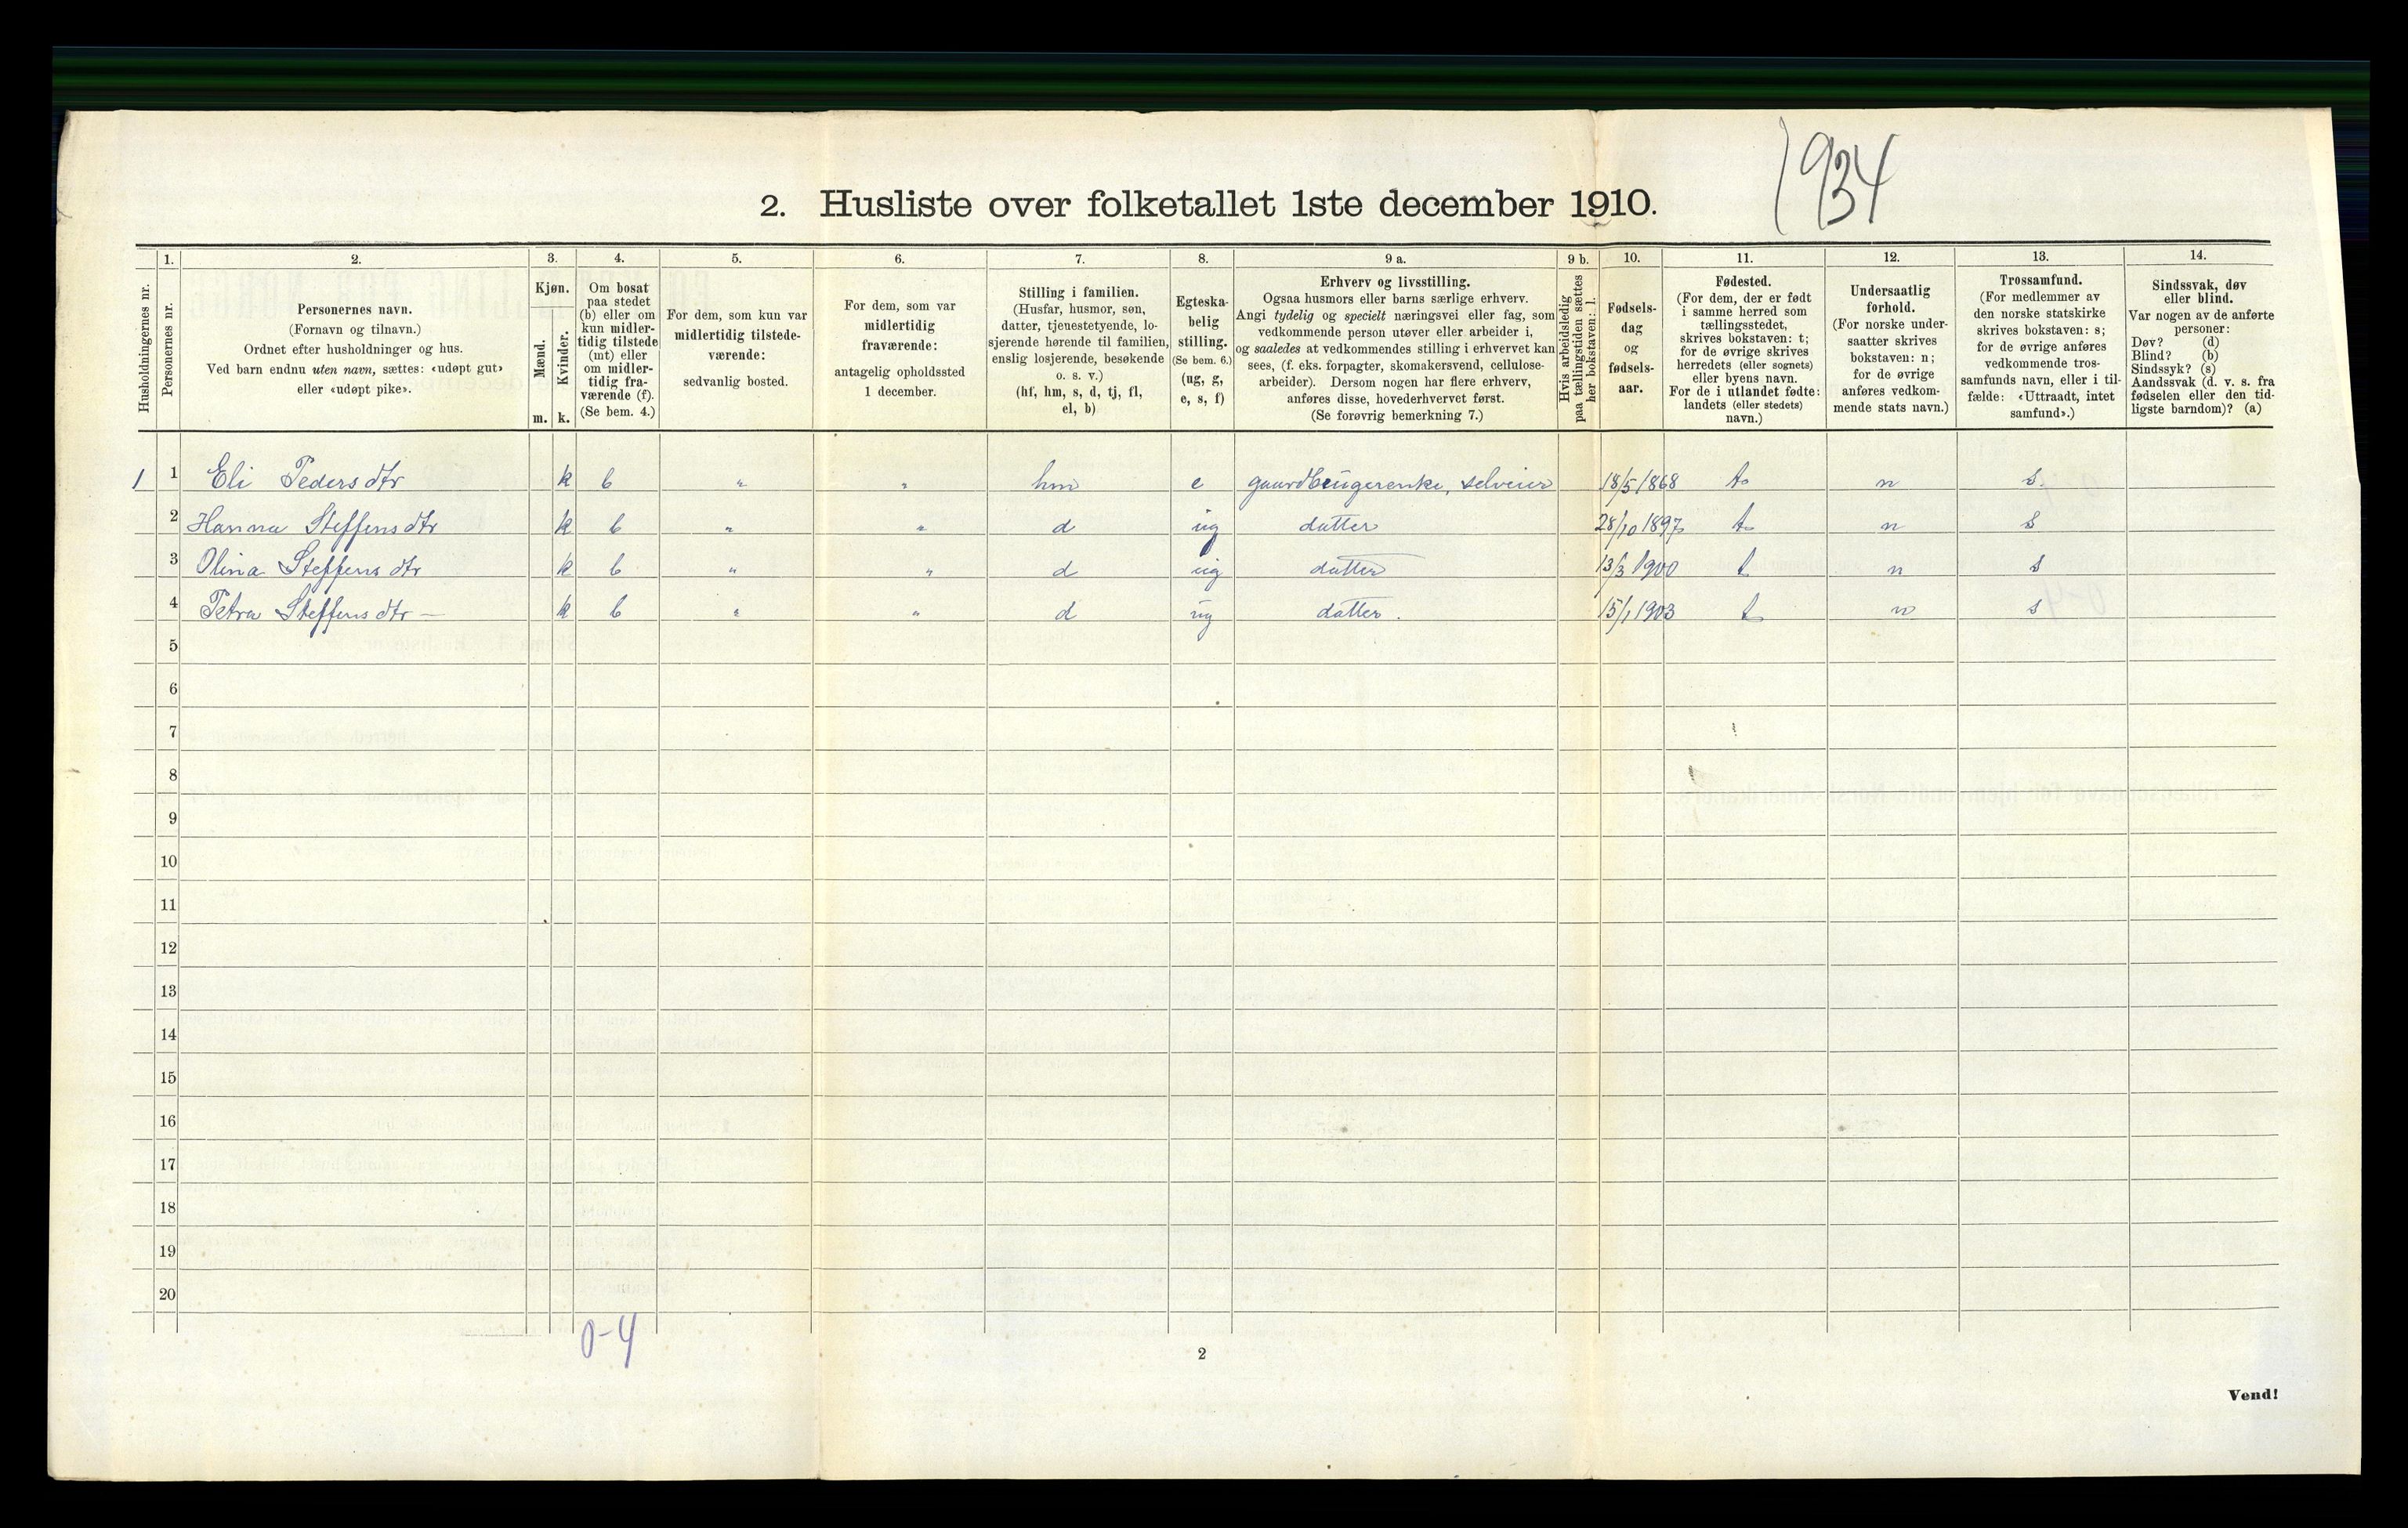 1934
2. Husliste over folketallet 1ste december 1910.
Husholdningernes nr.
1.
Personernes nr.
2.
Personernes navn.
(Fornavn og tilnavn.)
Ordnet efter husholdninger og hus.
Ved barn endnu uten navn, sættes: «udøpt gut»
eller «udøpt pike».
3.
Kjøn.
Mænd.
Kvinder.
m. k.
4.
Om bosat
paa stedet
(b) eller om
kun midler-
tidig tilstede
(mt) eller
om midler-
tidig fra-
værende (f).
(Se bem. 4.)
5.
For dem, som kun var
midlertidig tilstede-
værende:
sedvanlig bosted.
6.
For dem, som var
midlertidig
fraværende:
antagelig opholdssted
1 december.
7.
Stilling i familien.
(Husfar, husmor, søn,
datter, tjenestetyende, lo-
sjerende hørende til familien,
enslig losjerende, besøkende
o. s. v.)
(hf, hm, s, d, tj, fl,
el, b)
8.
Egteska-
belig
stilling.
(Se bem. 6.)
(ug, g,
e, s, f)
9 a.
Erhverv og livsstilling.
Ogsaa husmors eller barns særlige erhverv.
Angi tydelig og specielt næringsvei eller fag, som
vedkommende person utøver eller arbeider i,
og saaledes at vedkommendes stilling i erhvervet kan
sees, (f. eks. forpagter, skomakersvend, cellulose-
arbeider). Dersom nogen har flere erhverv,
anføres disse, hovederhvervet først.
(Se forøvrig bemerkning 7.)
9 b.
Hvis arbeidsledig
paa tællingstiden sættes
her bokstaven: l.
10.
Fødsels-
dag
og
fødsels-
aar.
11.
Fødested.
(For dem, der er født
i samme herred som
tællingsstedet,
skrives bokstaven: t;
for de øvrige skrives
herredets (eller sognets)
eller byens navn.
For de i utlandet fødte:
landets (eller stedets)
navn.)
12.
Undersaatlig
forhold.
(For norske under-
saatter skrives
bokstaven: n;
for de øvrige
anføres vedkom-
mende stats navn.)
13.
Trossamfund.
(For medlemmer av
den norske statskirke
skrives bokstaven: s;
for de øvrige anføres
vedkommende tros-
samfunds navn, eller i til-
fælde: «Uttraadt, intet
samfund».)
14.
Sindssvak, døv
eller blind.
Var nogen av de anførte
personer:
Døv? (d)
Blind? (b)
Sindssyk? (s)
Aandssvak (d. v. s. fra
fødselen eller den tid-
ligste barndom)? (a)
1 1 Eli Pedersdtr k b " " hm e gaardbrugerenke, selveier 18/5 1868 t n s.
2 Hanna Steffensdtr k b " " d ug datter 28/10 1897 t n s
3 Olina Steffensdtr k b " " d ug datter 13/3 1900 t n s
4 Petra Steffensdtr — k b " " d ug datter. 15/1 1903 t n s
5
6
7
8
9
10
11
12
13
14
15
16
17
18
19
20
0-4
2
Vend!